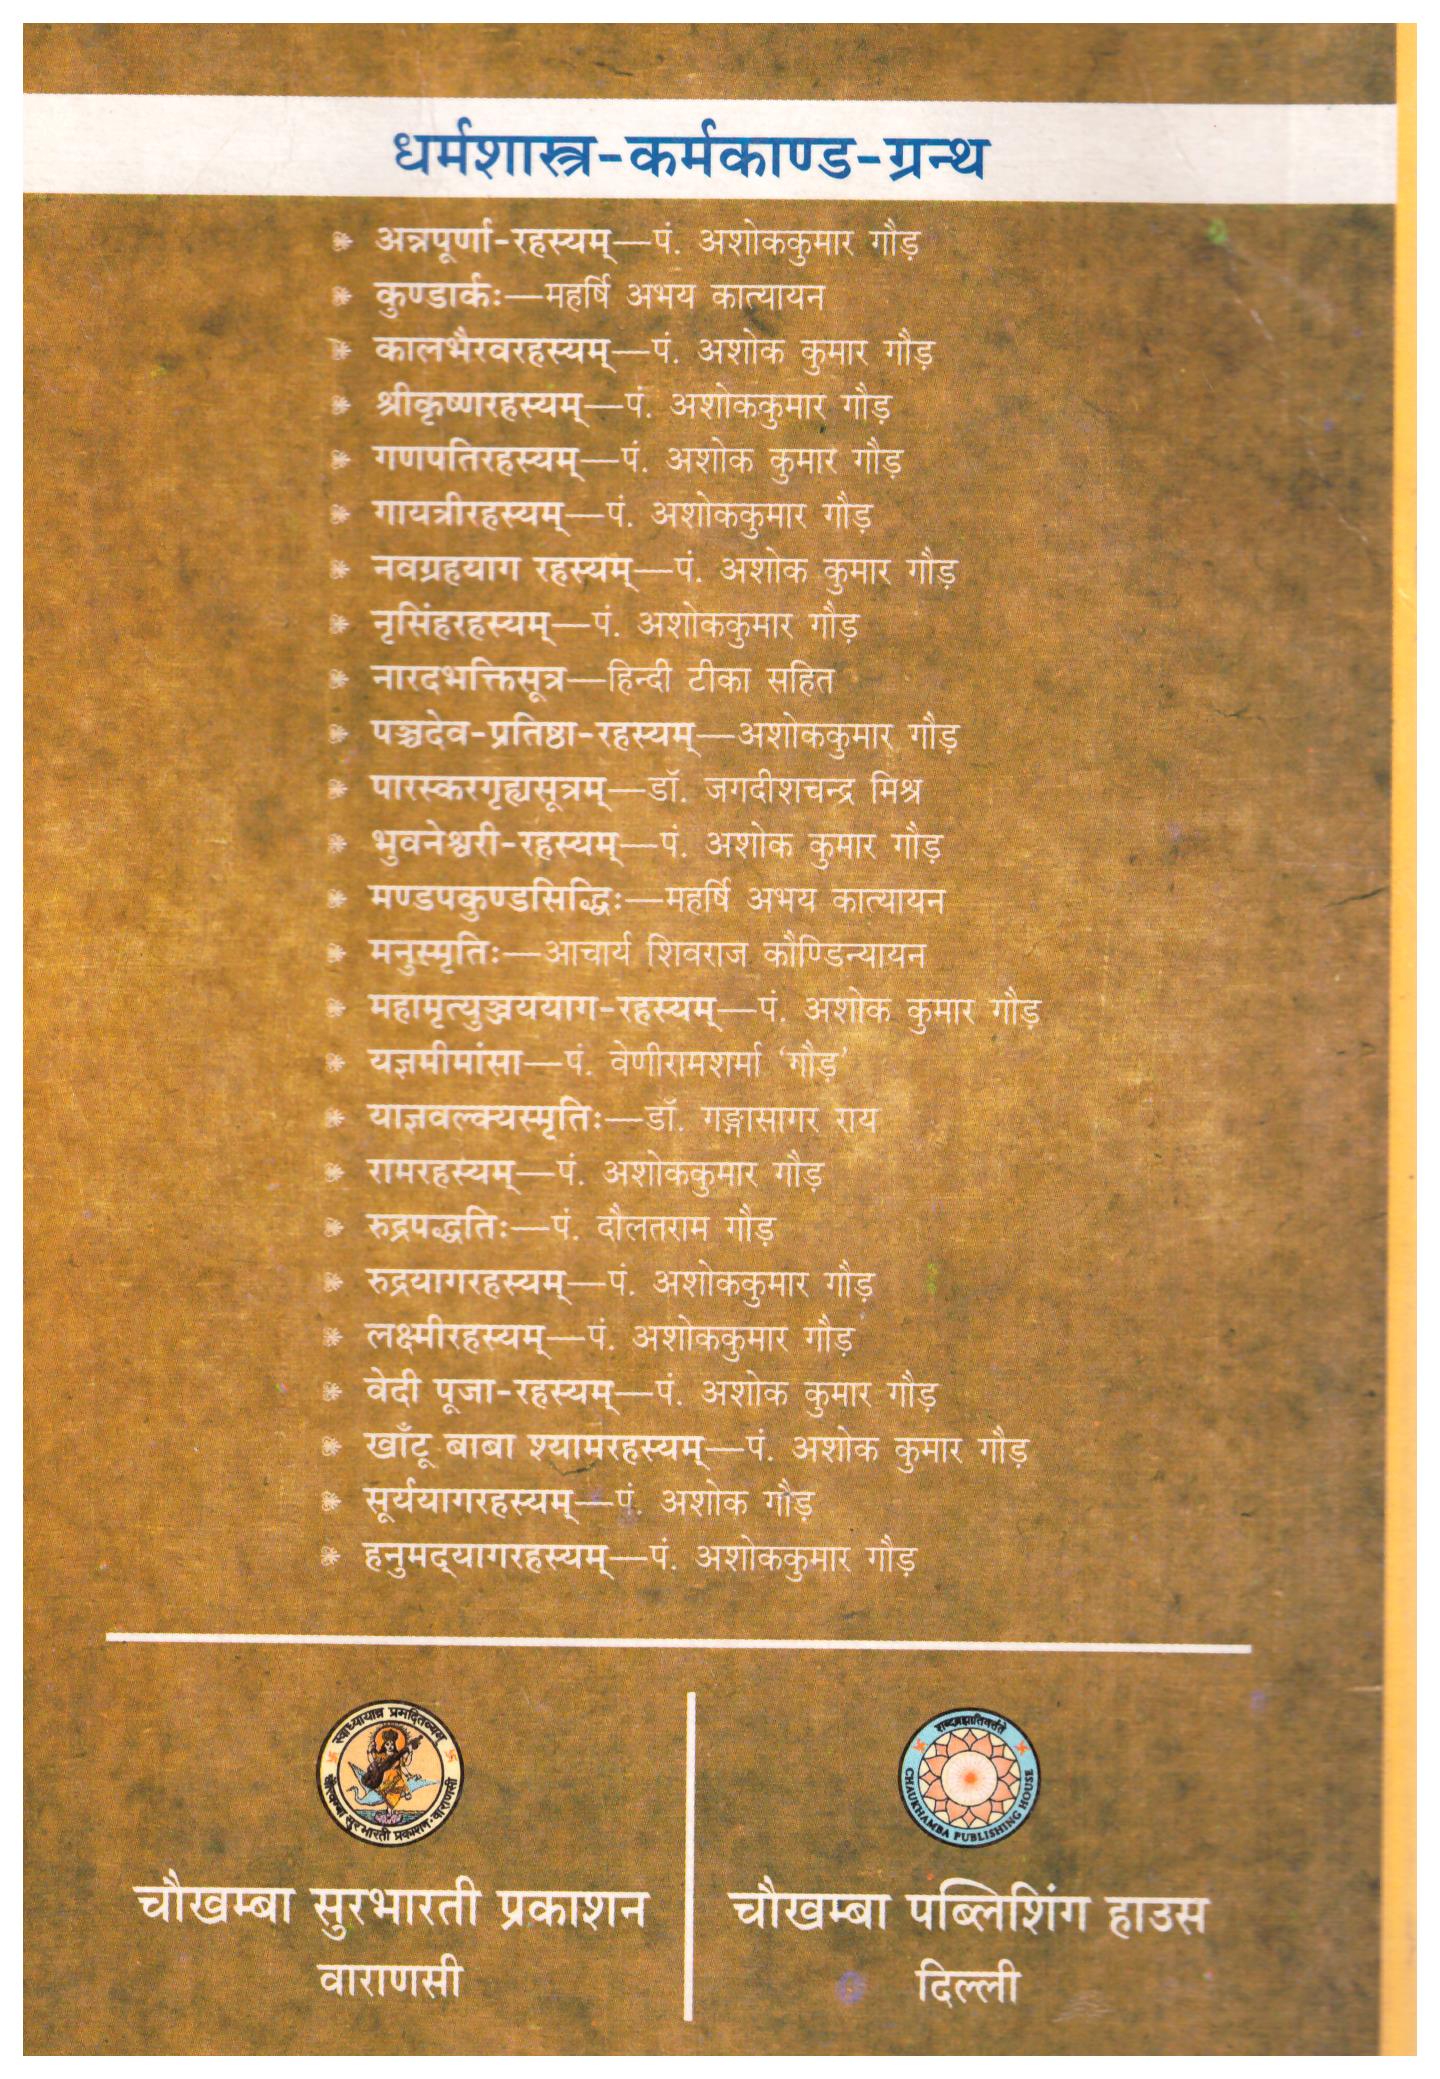 धर्मशास्त्र-कर्मकाण्ड-ग्रन्थ
अन्नपूर्णा-रहस्यम्—पं. अशोककुमार गौड़
कुण्डार्कः—महर्षि अभय कात्यायन
कालभैरवरहस्यम्—पं. अशोक कुमार गौड़
श्रीकृष्णरहस्यम्—पं. अशोककुमार गौड़
गणपतिरहस्यम्—पं. अशोक कुमार गौड़
गायत्रीरहस्यम्—पं. अशोककुमार गौड़
नवग्रहयाग रहस्यम्—पं. अशोक कुमार गौड़
नृसिंहरहस्यम्—पं. अशोककुमार गौड़
नारदभक्तिसूत्र—हिन्दी टीका सहित
पञ्चदेव-प्रतिष्ठा-रहस्यम्—अशोककुमार गौड़
पारस्करगृह्यसूत्रम्—डॉ. जगदीशचन्द्र मिश्र
भुवनेश्वरी-रहस्यम्—पं. अशोक कुमार गौड़
मण्डपकुण्डसिद्धिः—महर्षि अभय कात्यायन
मनुस्मृतिः—आचार्य शिवराज कौण्डिन्यायन
महामृत्युञ्जययाग-रहस्यम्—पं. अशोक कुमार गौड़
यज्ञमीमांसा—पं. वेणीरामशर्मा ‘गौड़’
याज्ञवल्क्यस्मृतिः—डॉ. गङ्गासागर राय
रामरहस्यम्—पं. अशोककुमार गौड़
रुद्रपद्धतिः—पं. दौलतराम गौड़
रुद्रयागरहस्यम्—पं. अशोककुमार गौड़
लक्ष्मीरहस्यम्—पं. अशोककुमार गौड़
वेदी पूजा-रहस्यम्—पं. अशोक कुमार गौड़
खाँटू बाबा श्यामरहस्यम्—पं. अशोक कुमार गौड़
सूर्ययागरहस्यम्—पं. अशोक गौड़
हनुमद्‌यागरहस्यम्—पं. अशोककुमार गौड़
स्वाध्यायान्न प्रमदितव्यम्
चौखम्बा सुरभारती प्रकाशन वाराणसी
शब्दब्रह्मातिवर्तते
CHAUKHAMBA PUBLISHING HOUSE
चौखम्बा सुरभारती प्रकाशन
वाराणसी
चौखम्बा पब्लिशिंग हाउस
दिल्ली